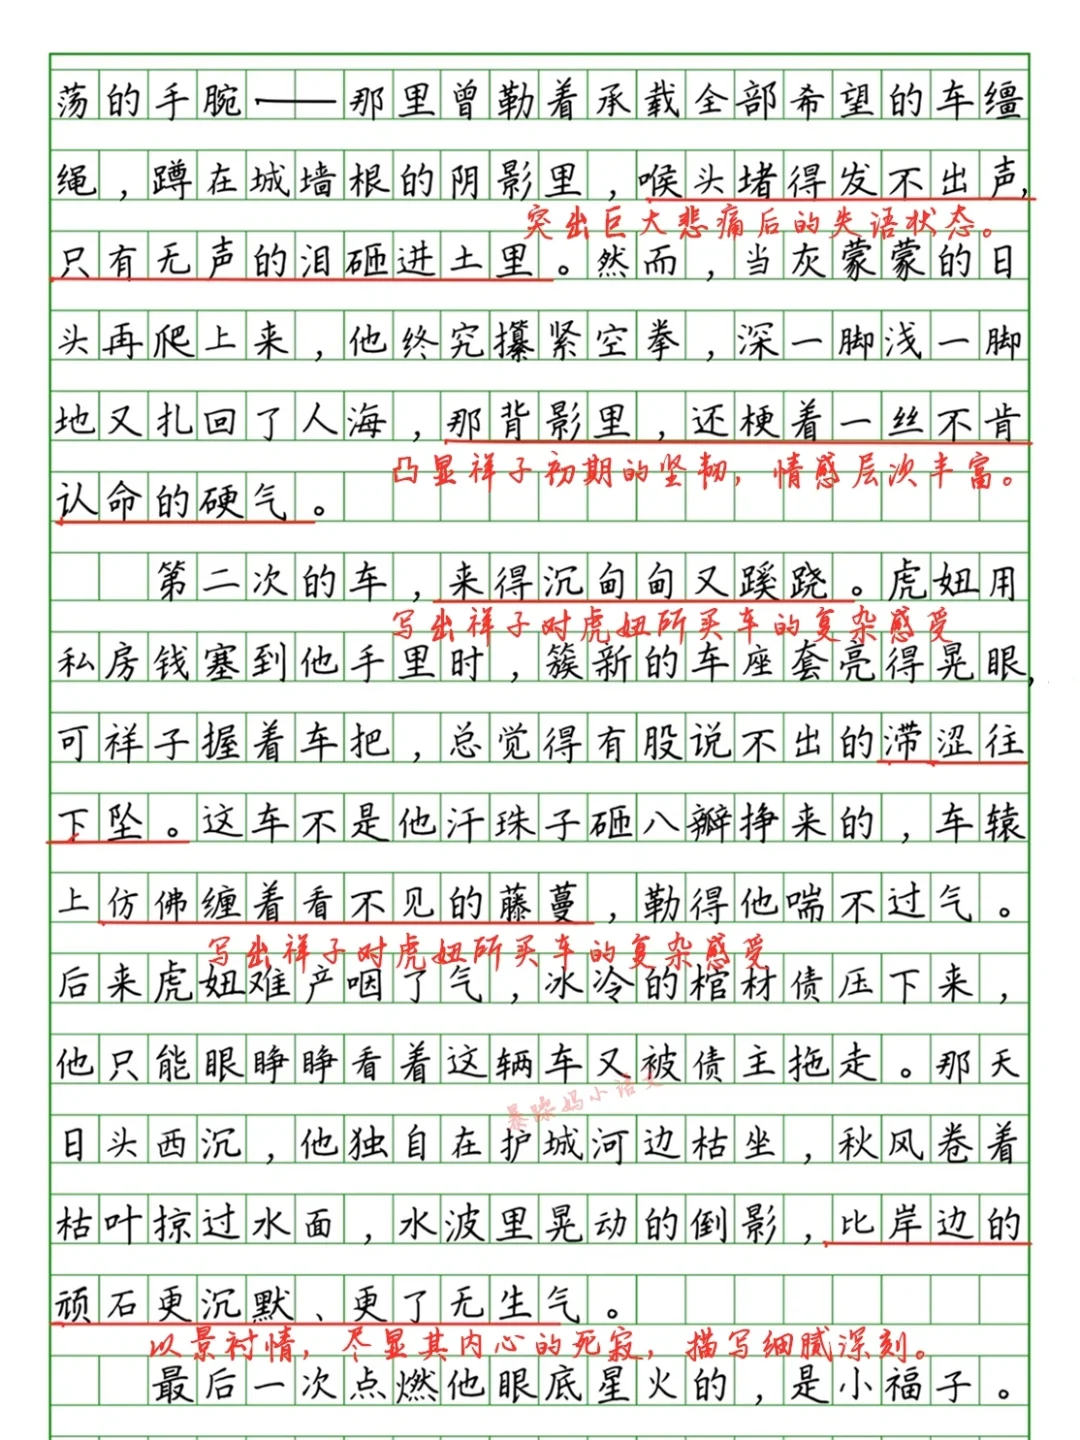 荡的手腕——那里曾勒着承载全部希望的车缰
绳，蹲在城墙根的阴影里，喉头堵得发不出声，
突出巨大悲痛后的失语状态。
只有无声的泪砸进土里。然而，当灰蒙蒙的日
头再爬上来，他终究攥紧空拳，深一脚浅一脚
地又扎回了人海，那背影里，还梗着一丝不肯
凸显祥子初期的坚韧，情感层次丰富。
认命的硬气。
第二次的车，来得沉甸甸又蹊跷。虎妞用
写出祥子对虎妞所买车的复杂感受
私房钱塞到他手里时，簇新的车座套亮得晃眼，
可祥子握着车把，总觉得有股说不出的滞涩往
下坠。这车不是他汗珠子砸八瓣挣来的，车辕
上仿佛缠着看不见的藤蔓，勒得他喘不过气。
写出祥子对虎妞所买车的复杂感受
后来虎妞难产咽了气，冰冷的棺材债压下来，
他只能眼睁睁看着这辆车又被债主拖走。那天
暴躁妈小语文
日头西沉，他独自在护城河边枯坐，秋风卷着
枯叶掠过水面，水波里晃动的倒影，比岸边的
顽石更沉默、更了无生气。
以景衬情，尽显其内心的死寂，描写细腻深刻。
最后一次点燃他眼底星火的，是小福子。